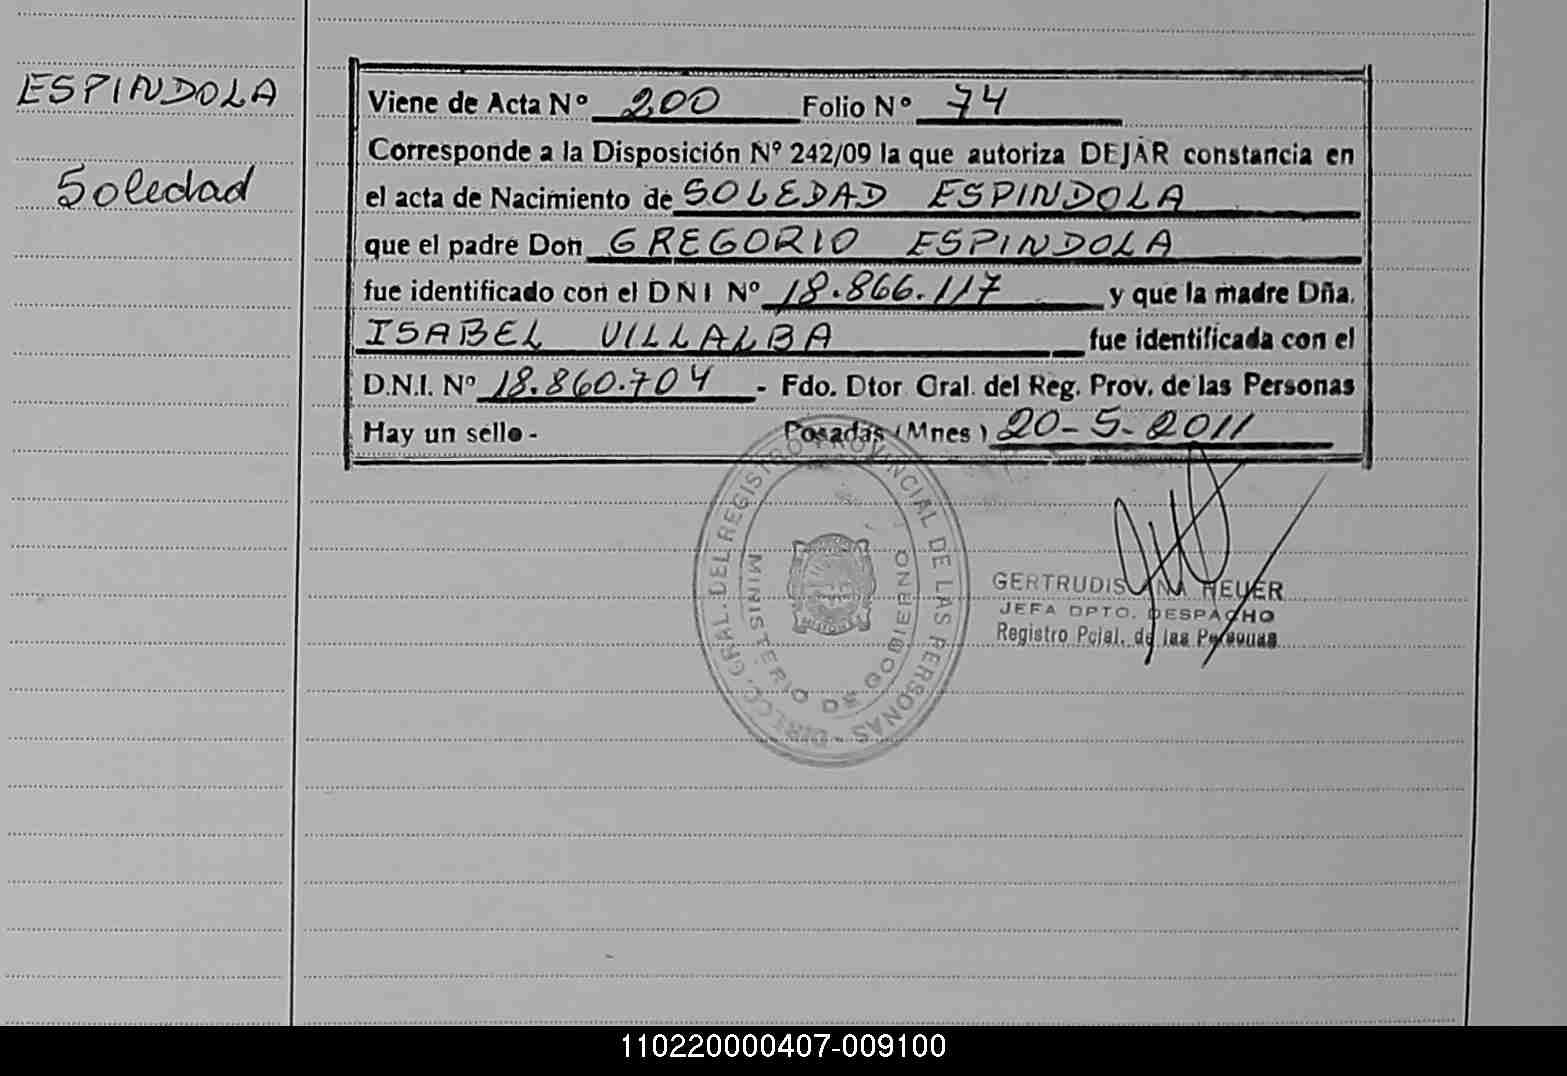 ESPINDOLA
Soledad
Viene de Acta Nº 200 Folio Nº 74
Corresponde a la Disposición Nº 242/09 la que autoriza DEJAR constancia en
el acta de Nacimiento de SOLEDAD ESPINDOLA
que el padre Don GREGORIO ESPINDOLA
fue identificado con el DNI Nº 18.866.117 y que la madre Dña.
ISABEL VILLALBA fue identificada con el
D.N.I. Nº 18.860.704 - Fdo. Dtor Gral. del Reg. Prov. de las Personas
Hay un sello - Posadas (Mnes) 20-5-2011
DIRECC. GRAL. DEL REGISTRO PROVINCIAL DE LAS PERSONAS -
MINISTERIO DE GOBIERNO
MISIONES
GERTRUDIS
JEFA DPTO. DESPACHO
Registro Pcial. de las Personas
110220000407-009100